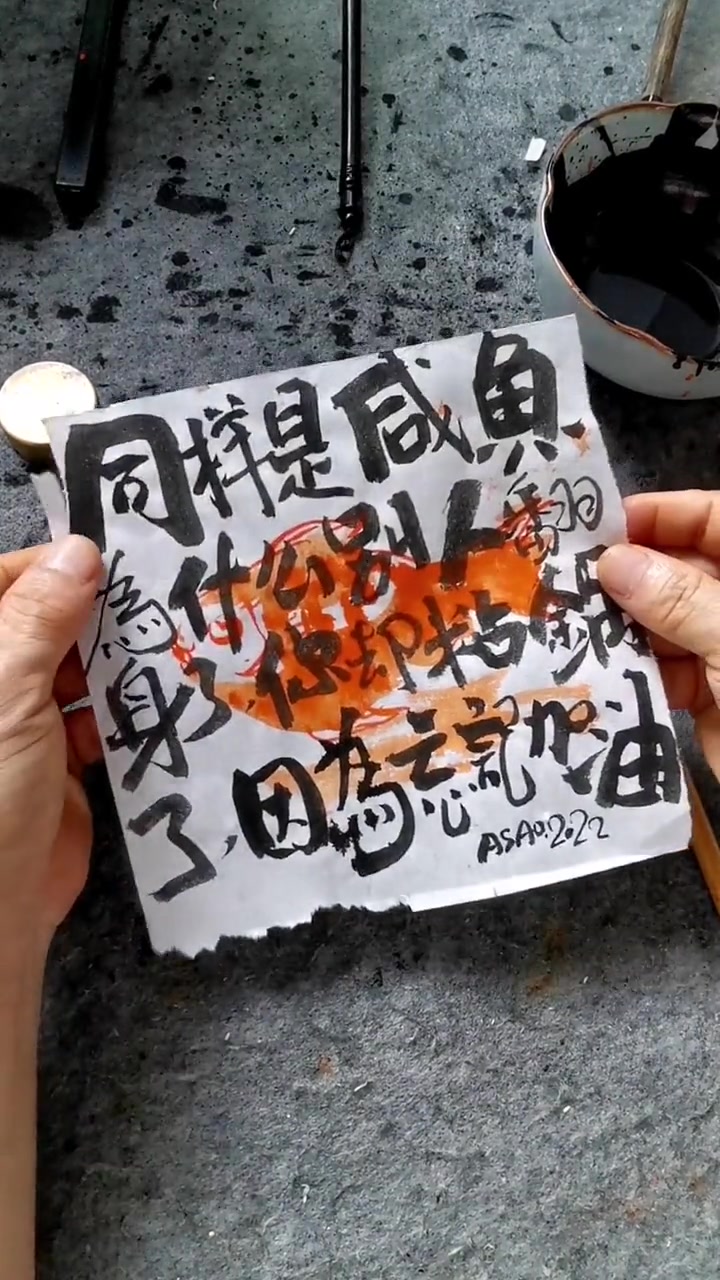 同样是咸鱼
為什么别人翻
身了,你却粘鍋
了,因為忘記加油
ASAO.2022